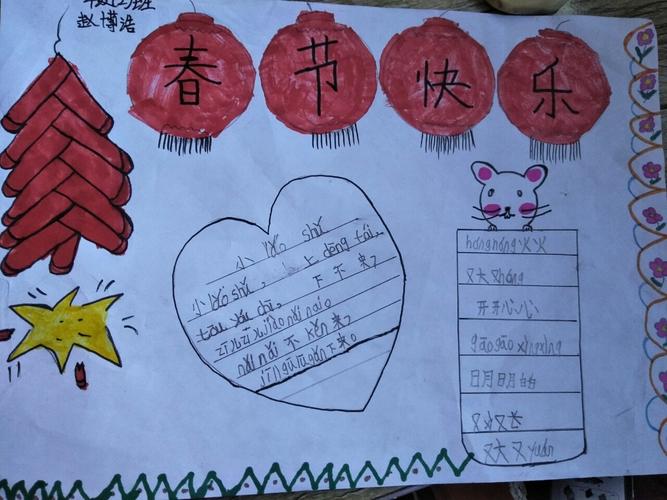 赵博浩
春节快乐
小 lǎo shǔ
小lǎoshǔ，上dēng tái，
tōu yóu chī， 下不来，
zī儿zī儿jiào nǎi nai。
nǎi nai 不 kěn 来，
jī li gū lū gǔn 下来。
hónghóng火火
又大又háng
开开心心
gāogāo xìngxìng
日月日月白白
又小又长
又大又yuán